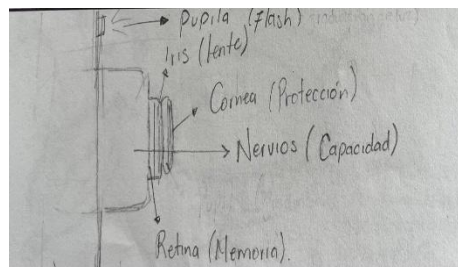 Pupila (Flash)
Iris (lente)
Cornea (Protección)
Nervios (Capacidad)
Retina (Memoria).